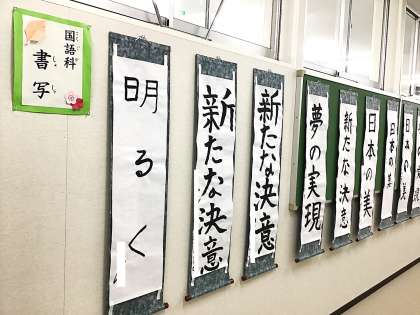 国語科
書写
しょ しゃ
明るく
新たな決意
新たな決意
夢の実現
新たな決意
日本の美
日本の美